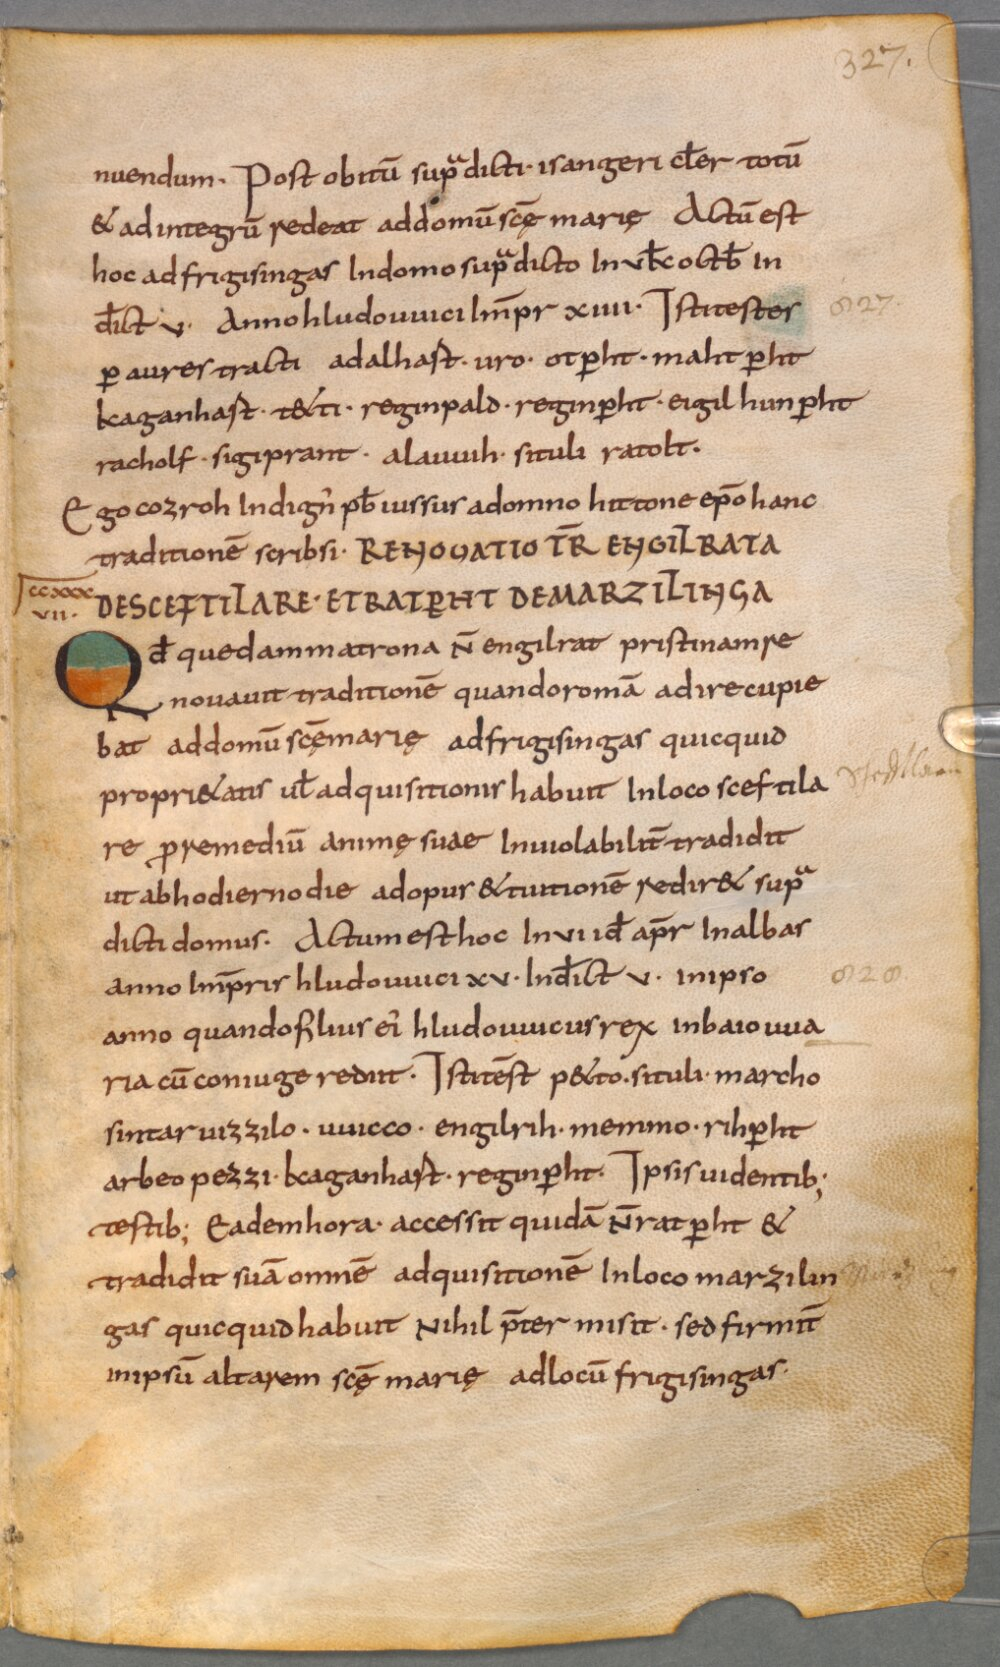 327.
nuendum. Post obitū supᵃdicti. isangeri cłer totū
& ad integrū redeat ad domū scę̄ marię Actū est
hoc ad frigisingas In domo supᵃdicto In vi kł octb̄ In
dict̄ v. Anno hludouuici Imp̄r xiiii. Isti testes
827.
ꝑ aures tracti adalhast. uro. otꝑht. mahtꝑht
kaganhast. t&ti. reginpald. reginꝑht. eigil hunꝑht
racholf. sigiprant. alauuih. situli ratolt.
Ego cozroh Indigñ pb̄ iussus a domno hittone ep̄o hanc
traditionē scribsi. RENOUATIO TR̄ ENGILRATA
ccxxx
vii.
DE SCEFTILARE. ET RATPERHT DE MARZILINGA
Qđ quedam matrona N̄ engilrat pristinam re
nouauit traditionē quando romā adire cupie
bat ad domū scę̄ marię ad frigisingas quicquid
propri&atis uł adquisitionis habuit In loco sceftila
re ꝓ remediū animę suae Inuiolabilit̄ tradidit
ut ab hodierno die ad opus & tuitionē redir& supᵃ
dicti domus. Actum est hoc In vi iđ ap̄r In albas
anno Imp̄ris hludouuici xv. Indict̄ v. in ipso
828.
anno quando filius ei' hludouuicus rex in baiouua
ria cū coniuge rediit. Isti test̄ p&to. situli. marcho
sintar uizzilo. uuicco. engilrih. memmo. rihꝑht
arbeo pezzi. kaganhast. reginꝑht. Ipsis uidentib;
testib; Eadem hora. accessit quidā N̄ ratꝑht &
tradidit suā omnē adquisitionē In loco marzilin
gas quicquid habuit Nihil p̄termisit. sed firmit̄
in ipsū altarem scę̄ marię ad locū frigisingas.